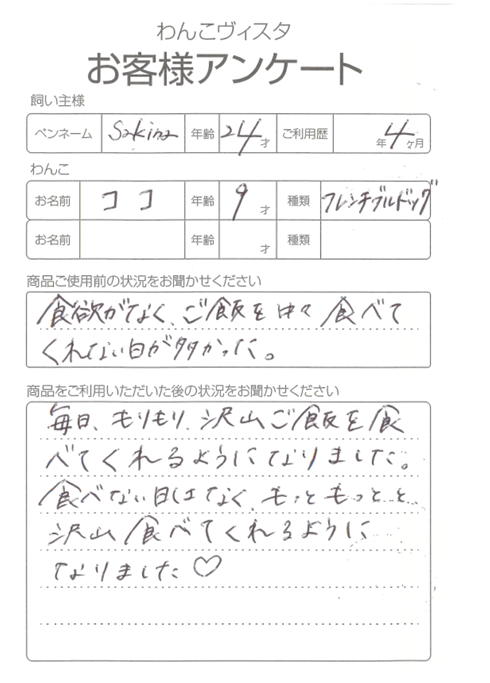 わんこヴィスタ
お客様アンケート
飼い主様
ペンネーム Sakina 年齢 24才 ご利用歴 年4ヶ月
わんこ
お名前 ココ 年齢 9才 種類 フレンチブルドッグ
お名前 年齢 才 種類
商品ご使用前の状況をお聞かせください
食欲がなく、ご飯を中々食べて
くれない日が多かった。
商品をご利用いただいた後の状況をお聞かせください
毎日、もりもり、沢山ご飯を食
べてくれるようになりました。
食べない日はなく、もっともっとと
沢山食べてくれるように
なりました♡